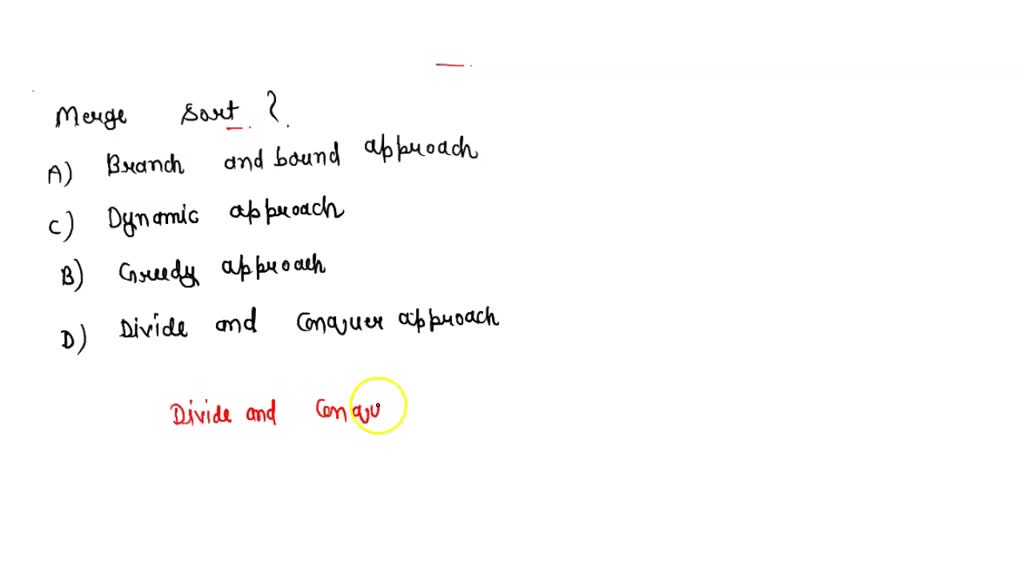 Merge Sort ?
A) Branch and bound approach
C) Dynamic approach
B) Greedy approach
D) Divide and Conquer approach
Divide and Conqu